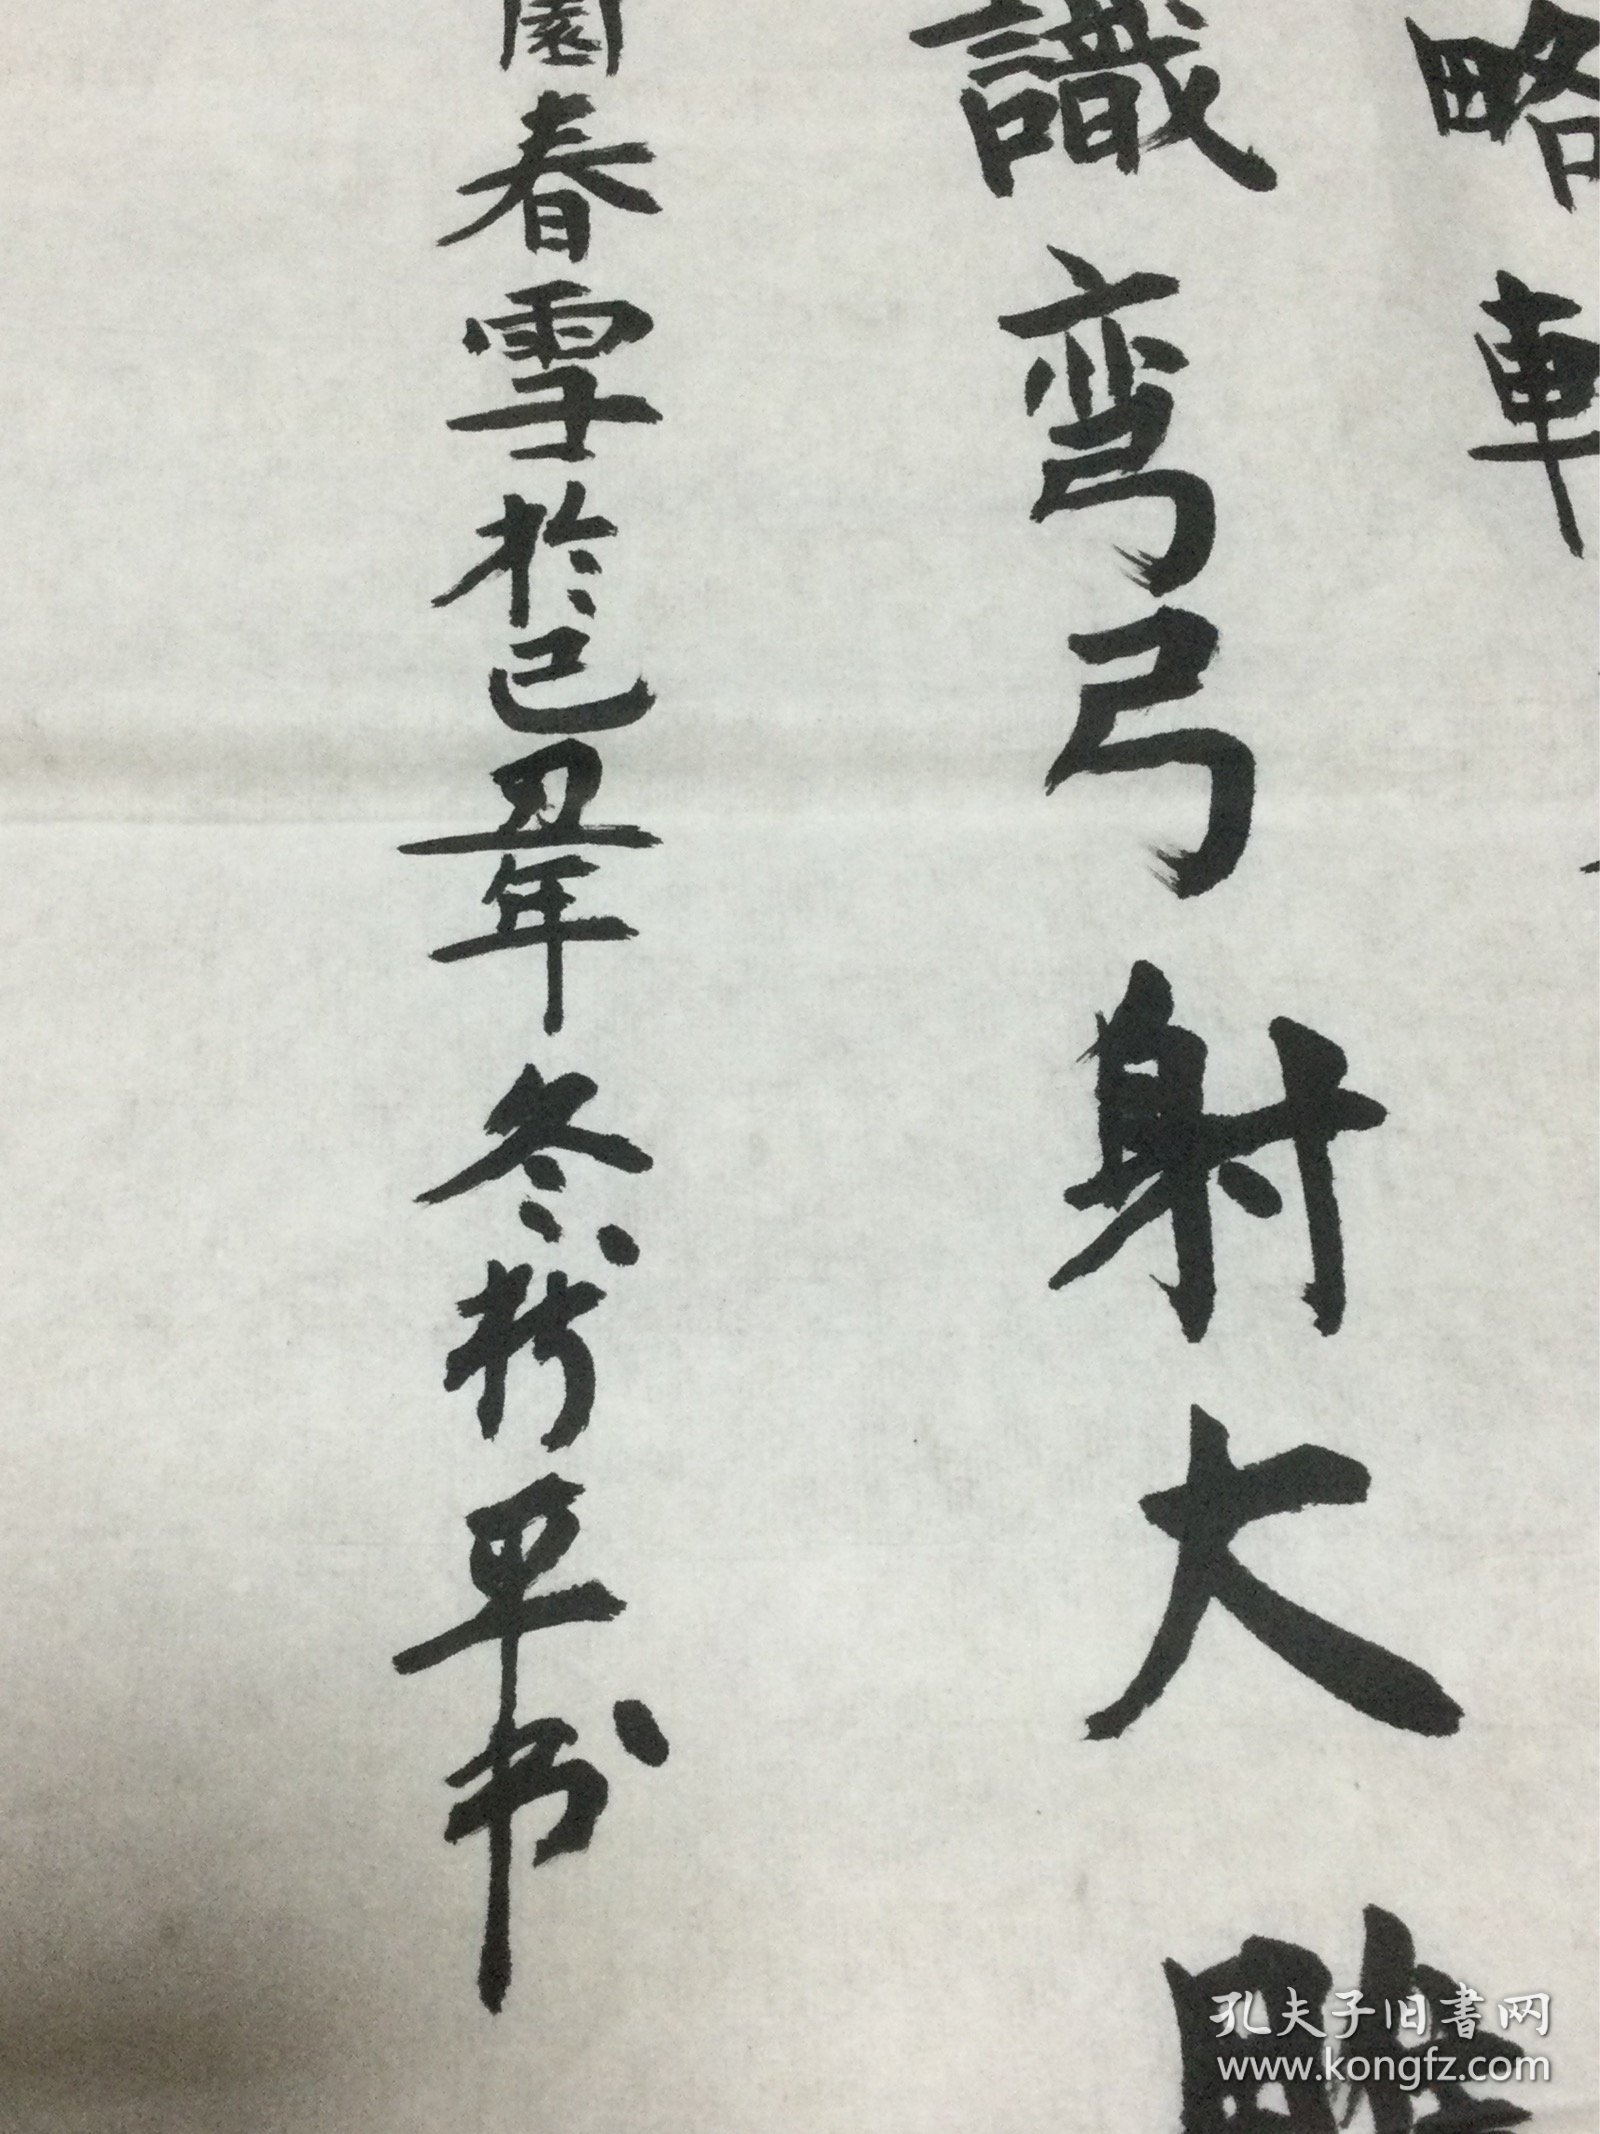 略
識弯弓射大雕
園春雪於己丑年冬平书
孔夫子旧書网
www.kongfz.com